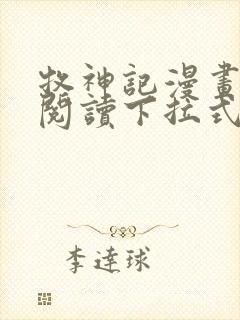 牧神記漫畫
閱讀下拉式
李達球